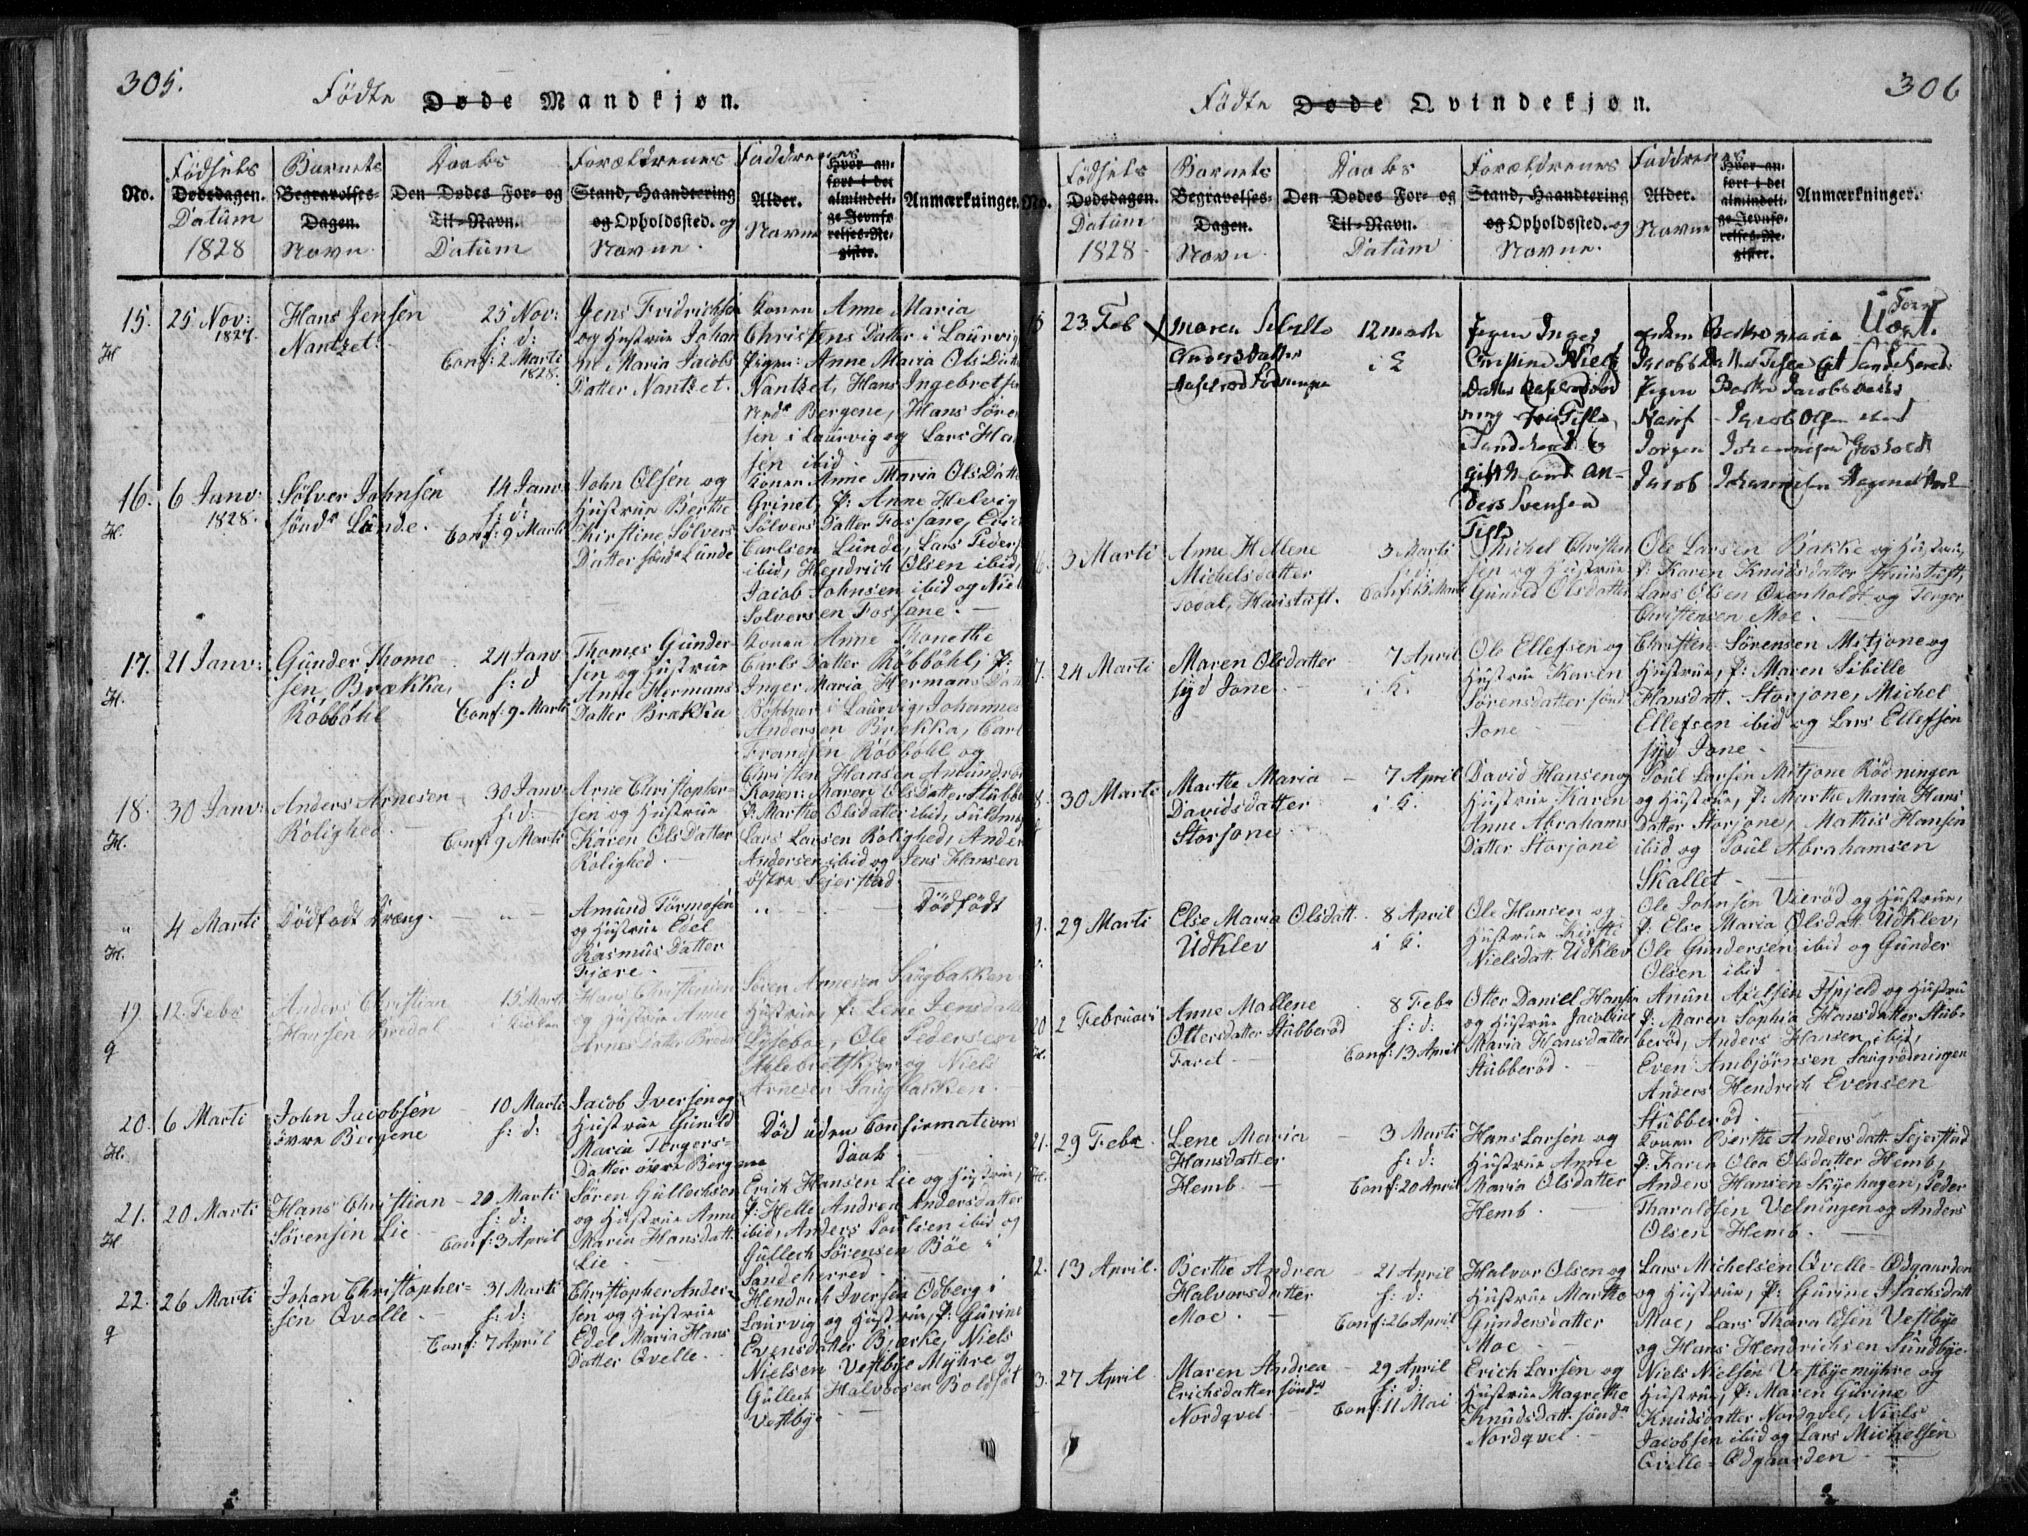 305.
Fødte Døde Mandkjøn.
No.
Fødsels
Dødsdagen.
Datum
1828
Barnets
Begravelses-
Dagen.
Navn
Daabs
Den Dødes For- og
Til-Navn.
Datum
Forældrenes
Stand, Haandtering
og Opholdssted. og
Navne.
Faddrenes
Alder.
Navne
Hvor an-
ført i det
almindeli-
ge Jevnfø-
relses-Re-
gister.
Anmærkninger.
15.
H
25 Nov:
1827.
Hans Jensen
Nantset
25 Nov:
h: d:
Conf: 2 Marti
1828.
Jens Fridrichsen
og Hustrue Johan
ne Maria Jacobs
Datter Nantset.
Konen Anne Maria
Christens Datter i Laurvig
Pigen: Anne Maria Ols Datt
Nantset, Hans Ingebretsen
Bergene, Hans Søren
sen i Laurvig og Lars Han
sen ibid
16.
H.
6 Janv:
1828.
Sølver Johnsen
søndr Lunde.
14 Janv
h: d:
Conf: 9 Marti
John Olsen og
Hustrue Berthe
Kirstine Sølvers
Datter søndr Lunde
Konen Anne Maria Ols Datter
Grinet, P: Anne Helvig
Sølvers Datter Fossane, Erich
Carlsen Lunde, Lars Peders
ibid, Hendrich Olsen ibid,
Jacob Johnsen ibid og Niels
Solversen Fossane.
17.
H.
21 Janv:
Gunder Thome
sen Brækka,
Røbbøhl
24 Janv
h: d
Conf: 9 Marti
Thomes Gunder-
sen og Hustrue
Anne Hermans
Datter Brækka
Konen Anne Thonethe
Carls Datter Røbbøhl, P:
Inger Maria Hermans Dat
Bøttner i Laurvig, Johannes
Andersen Brækka, Carl
Frandsen Røbbøhl og
Christen Hansen Amundrød
18.
H.
30 Janv:
Anders Arnesen
Rolighed.
30 Janv
h: d:
Conf: 9 Marti
Arne Christopher-
sen og Hustrue
Karen Ols Datter
Rolighed.
Konen: Maren Ols Datter Stubbe
P: Marthe Olsdatter ibid,
Lars Larsen Rolighed, Ander
Andersen ibid og Jens Hansen
østre Sejerstad
"
H.
4 Marti
Dødfødt Dræng.
Amund Tormosen
og Hustrue Edel
Rasmus Datter
Fjære.
Dødfødt
19.
q
12. Febr
Anders Christian
Hansen Bredal
15 Marti
i Kirken
Hans Christensen
og Hustrue Anne
Arnes Datter Bredal
Søren Arnesen Laugbakken
Hustrue, P: Lene Jensdatter
Lyseboe, Ole Pedersen
og Niels
Arnesen Laugbakken.
20.
H.
6 Marti
John Jacobsen
øvre Bergene
10 Marti
h: d:
Jacob Iversen og
Hustrue Gunild
Maria Torgers-
Datter øvre Bergene
Død uden Confirmations
Daab
21.
H
20 Marti
Hans Christian
Sørensen Lie
20 Marti
h: d:
Conf: 3 April
Søren Gullechsen
og Hustrue Anne
Maria Hansdatt.
Lie.
Erich Hansen Lie og Hustrue,
P: Helle Andrea Andersdatter
ibid, Anders Poulsen ibid og
Gullech Sørensen Bøe i
Sandeherred
22.
q
26 Marti
Johan Christopher-
sen Qvelle.
31 Marti
h: d:
Conf: 7 April
Christopher Ander-
sen og Hustrue
Edel Maria Hans
Datter Qvelle.
Hendrich Iversen Odberg i
Laurvig og Hustrue, P: Gurine
Evensdatter Bjerke, Niels
Nielsen Vestbye Myhre og
Gullech Halvorsen Boldstøt
Vestbye
306
Fødte Døde Qvindekjøn.
No.
Fødsels
Dødsdagen.
Datum
1828
Barnets
Begravelses-
Dagen.
Navn
Daabs
Den Dødes For- og
Til-Navn.
Datum
Forældrenes
Stand, Haandtering
og Opholdssted. og
Navne.
Faddrenes
Alder.
Navne
Hvor an-
ført i det
almindeli-
ge Jevnfø-
relses-Re-
gister.
Anmærkninger.
15
23 Feb
Maren Sibille
Andersdatter
12 marti
i K
Pigen Inger
Christine Niels
Datter
Sandeherred og
gift mand An-
ders Svensen
Tisle
Uægt.
Jacob Olsen
Jørgen Johannesen
Jacob Johannesen
3 Marti
Anne Hellene
Michelsdatter
Fodal, Huustuft.
3 Marti
h: d:
Conf: 13 Marti
Michel Christen
sen og Hustrue
Guned Olsdatter
Ole Larsen Bakke og Hustrue,
P: Karen Knudsdatter Huustuft,
Lars Olsen Oxenholdt og Torger
Christensen Moe.
7.
24 Marti
Maren Olsdatter
syd Jone.
7 April
i K.
Ole Ellefsen og
Hustrue Karen
Sørensdatter sønd
Jone
Christen Sørensen Mitjone og
Hustrue, P: Maren Sibille
Hansdatt. Storjone, Michel
Ellefsen ibid og Lars Ellefsen
syd Jone.
8.
30 Marti
Marthe Maria
Davidsdatter
Storjone
7 April
i K.
David Hansen og
Hustrue Karen
Anne Abrahams
Datter Storjone
Poul Larsen Mitjone Rødningen
og Hustrue, P: Marthe Maria Hans
Datter Storjone, Mathis Hansen
ibid og Poul Abrahamsen
Skallet
9.
29 Marti
Else Maria Olsdatt.
Udklev
8 April
i K.
Ole Hansen og
Hustrue Kirsti
Nielsdatt. Udklev
Ole Johnsen Vierød og Hustrue,
P: Else Maria Olsdatt Udklev,
Ole Gundersen ibid og Gunder
Olsen ibid
20
H.
2 Februari
Anne Mallene
Ottersdatter Stubberød
Farel.
8 Febr
h: d:
Conf: 13 April
Otter Daniel Hansen
og Hustrue Jacobine
Maria Hansdatter
Stubberød.
Anun Axelsen Fjeld og Hustrue
P: Maren Sophia Hansdatter Stub-
berød, Anders Hansen ibid,
Even Ambjørnsen Laugrødningen
Anders Hendrich Evensen
Stubberød
21.
H.
29 Febr
Lene Maria
Hansdatter
Hemb.
3 Marti
h: d:
Conf: 20 April
Hans Larsen og
Hustrue Anne
Maria Olsdatter
Hemb.
Konen Berthe Andersdatt. Sejerstad
P: Karen Olea Olsdatter Hemb,
Anders Hansen Skjæhagen, Peder
Tharaldsen Velningen og Anders
Olsen Hemb
2.
13 April.
Berthe Andrea
Halvorsdatter
Moe.
21 April
h: d:
Conf: 26 April
Halvor Olsen og
Hustrue Marthe
Gundersdatter
Moe
Lars Michelsen Qvelle-Ødgaarden
og Hustrue, P: Gurine Isachsdatt
Moe, Lars Tharaldsen Vestbye
og Hans Hendrichsen Sundbye
3.
27 April
Maren Andrea
Erichsdatter søndr
Nordqvel
29 April
h: d:
Conf: 11 Mai
Erich Larsen og
Hustrue Magrethe
Knudsdatt. søndr
Nordqvel
Niels Nielsen Vestbyemyhre og
Hustrue, P: Maren Gurine
Knudsdatter Nordqvel, Niels
Jacobsen ibid og Lars Michelsen
Qvelle-Ødgaarden